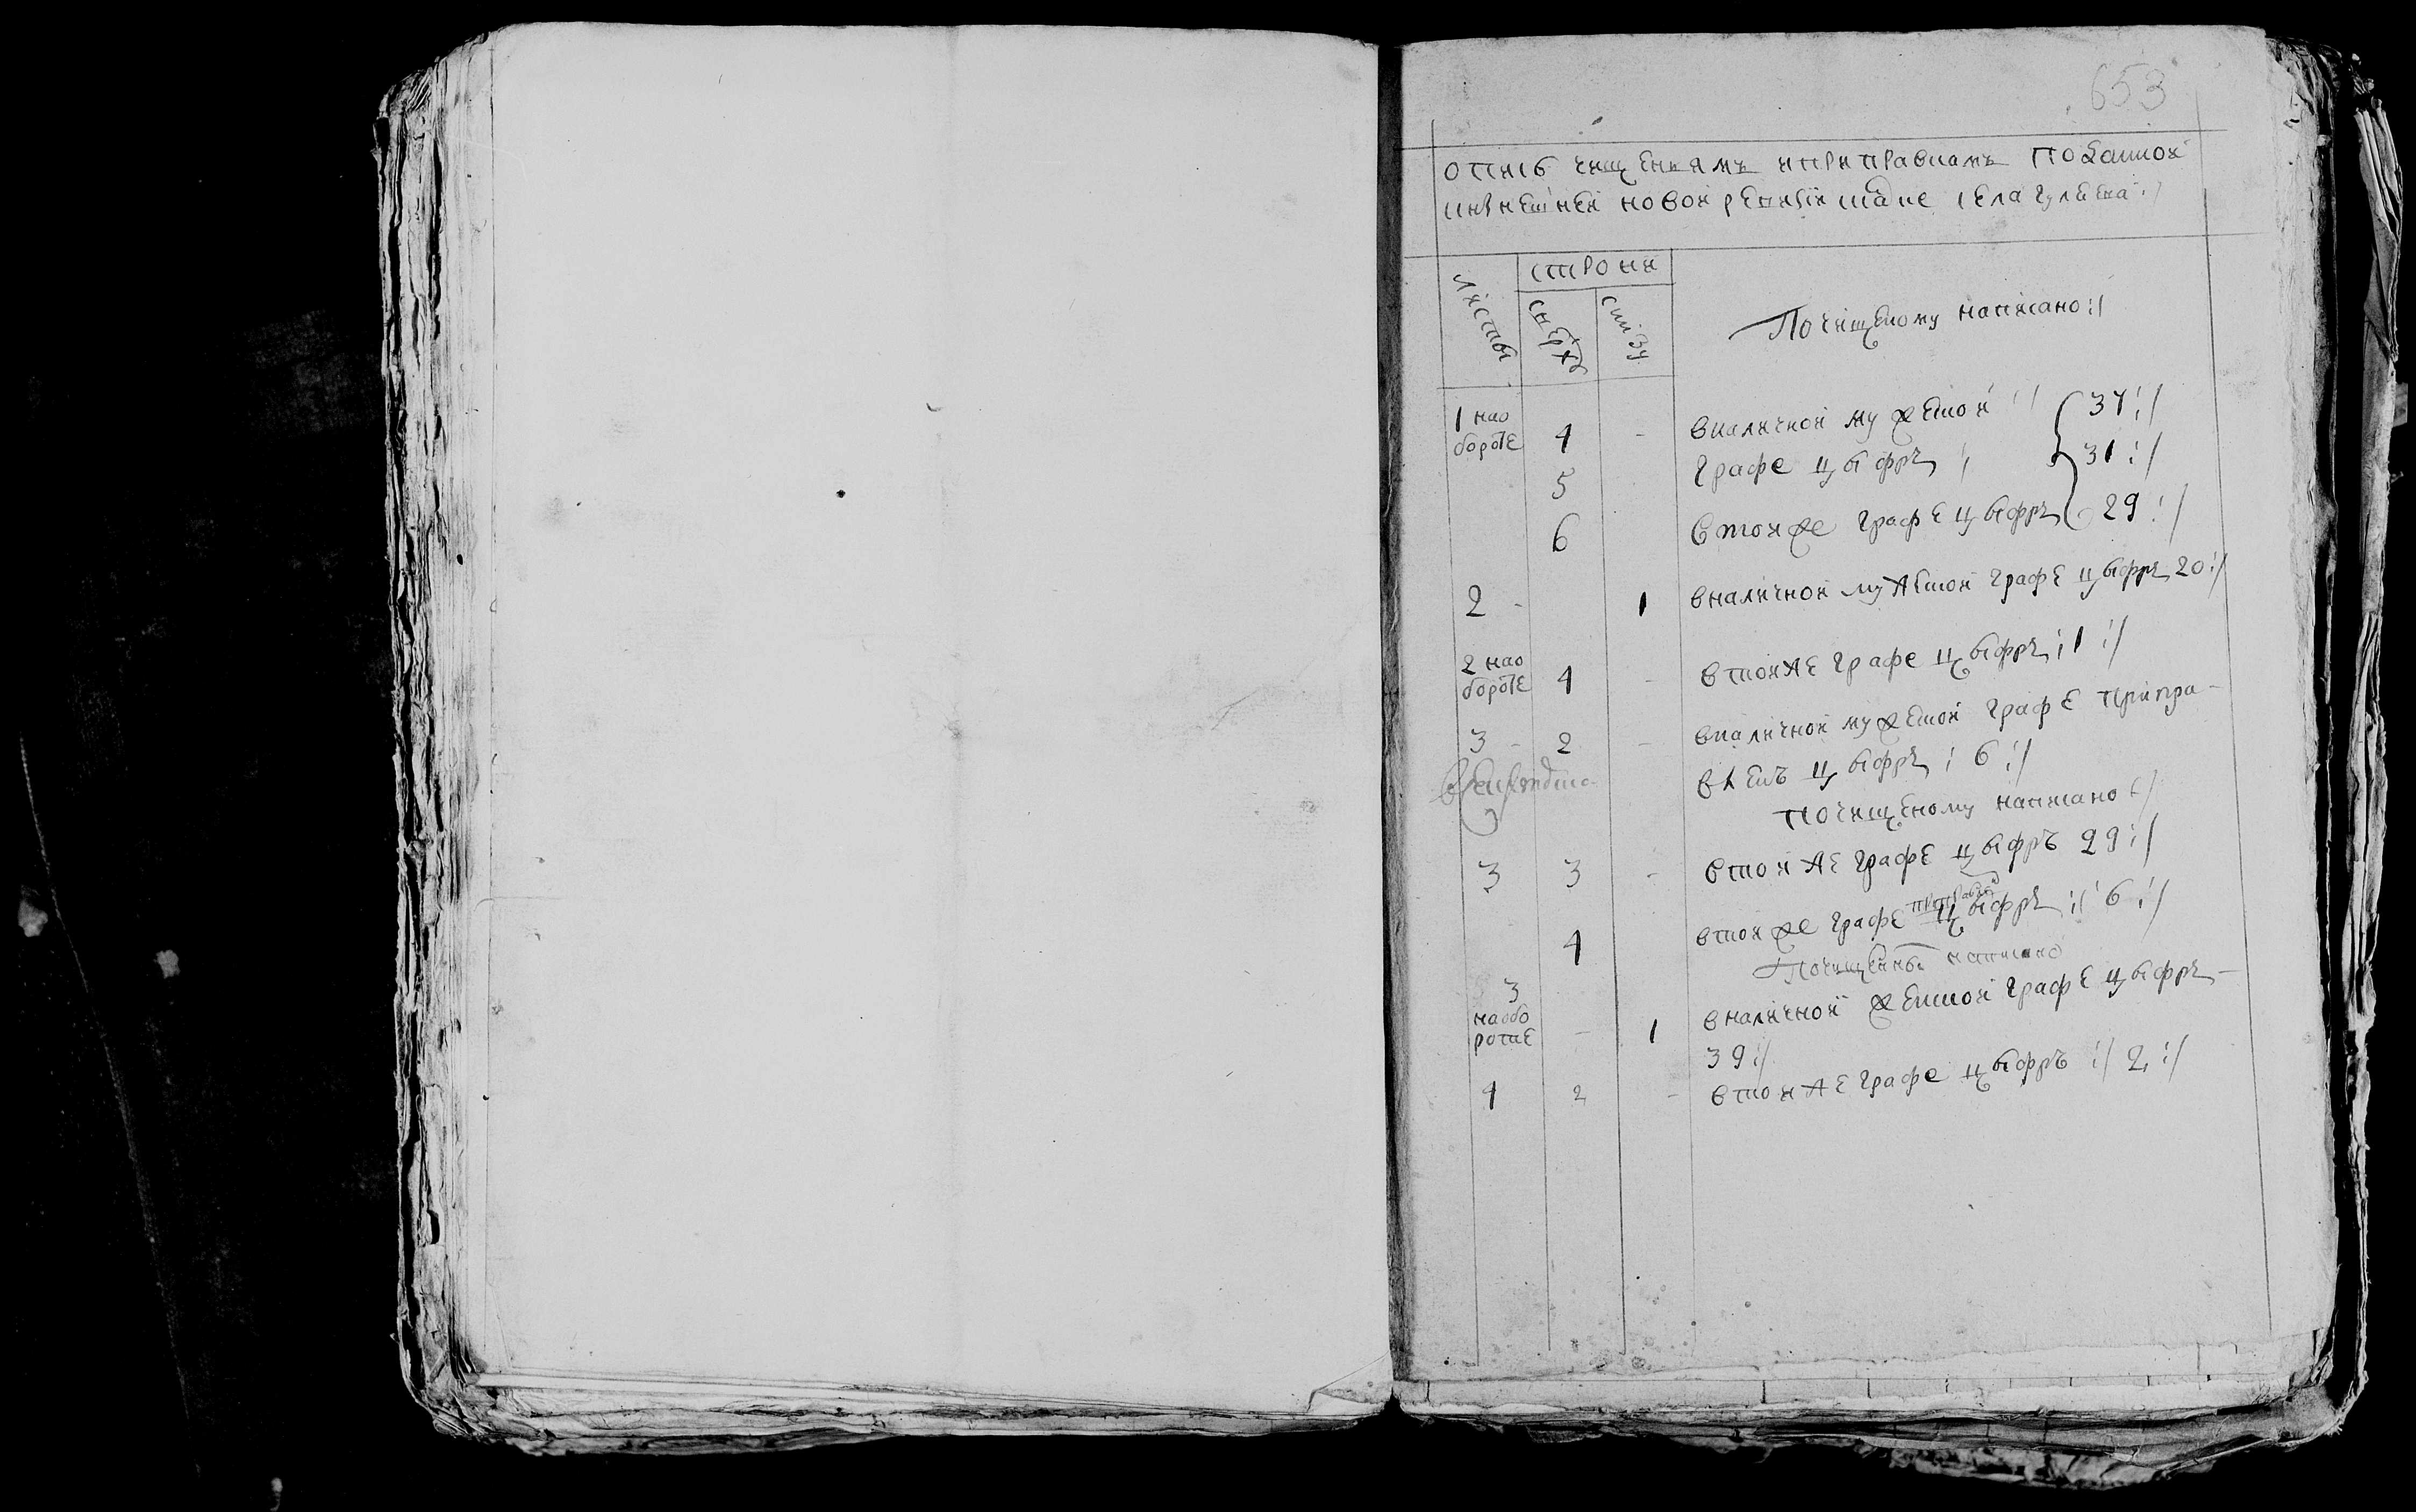 653
опись чищениямъ ИприПравкамъ По даннои
нынешней новой ревизской скаске села гулиена
листы
строки
сверху
снизу
По чищеному написано
1 нао
бороте 4 - вналичной мужеской 37
5 графе цыфръ 31
6 втойже графе цыфръ 29
2 - 1 вналичной мужеской графе цыфръ 20
2 нао
бороте 4 - втойже графе цыфръ 1
3 - 2 - вналичной мужеской графе припра-
вленъ цыфръ 6
почищеному написано
3 3 - втойже графе цыфръ 29
4 втойже графе приправленъ цыфръ 6
Почищенному написано
3
наобо
роте - 1 вналичной женской графе цыфръ
39
4 2 - втойже графе цыфръ 2